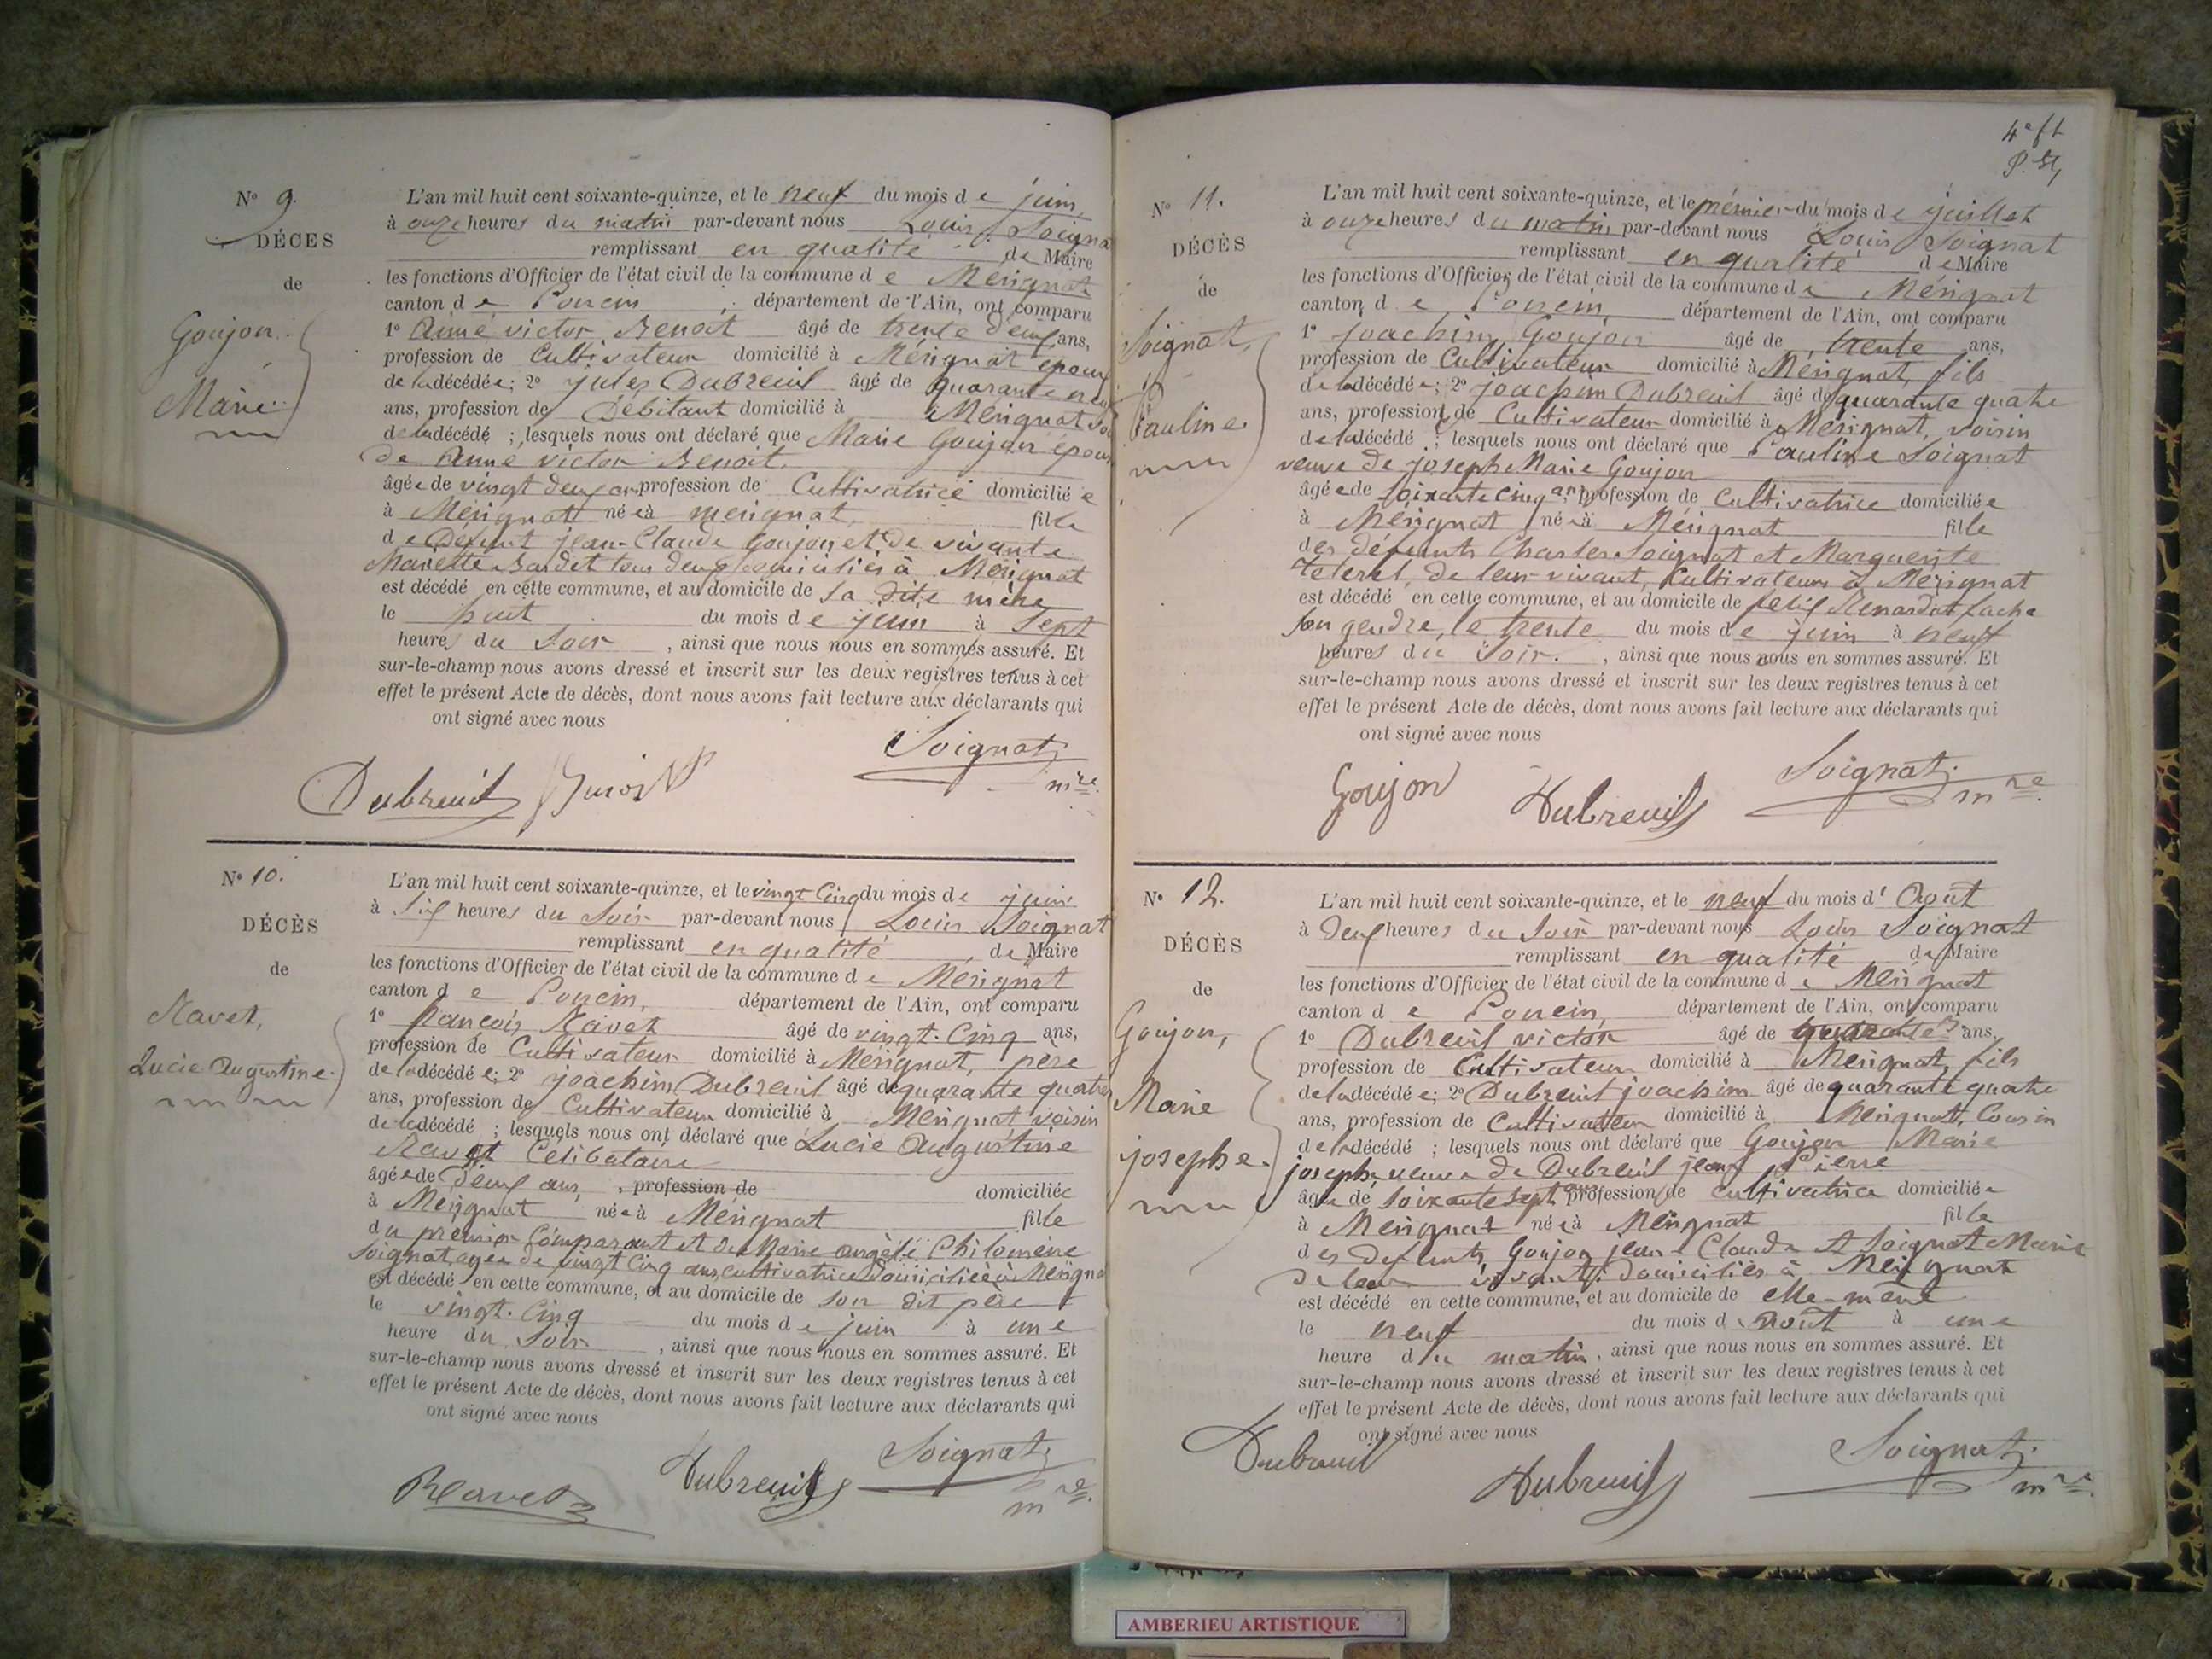 N° 9.
DÉCES
de
Goujon
Marie
L'an mil huit cent soixante-quinze, et le neuf du mois de juin
à onze heures du matin par-devant nous Louis Soignat
remplissant en qualité de Maire
les fonctions d'Officier de l'état civil de la commune de Mérignat
canton de Poncin, département de l'Ain, ont comparu
1° Anné victor Benoit âgé de trente deux ans,
profession de Cultivateur domicilié à Mérignat époux
de la décédée; 2° jules Dubreuil âgé de quarante neuf
ans, profession de Débitant domicilié à Mérignat
de la décédé ; lesquels nous ont déclaré que Marie Goujon épouse
de Anné victor Benoit.
âgée de vingt deux ans profession de Cultivatrice domiciliée
à Mérignat née à merignat, fille
de Défunt jean-Claude Goujon et de vivante
Mariette Bardet tous deux domiciliés à Mérignat
est décédé en cette commune, et au domicile de sa dite mère
le huit du mois de juin à Sept
heures du Soir, ainsi que nous nous en sommes assuré. Et
sur-le-champ nous avons dressé et inscrit sur les deux registres tenus à cet
effet le présent Acte de décès, dont nous avons fait lecture aux déclarants qui
ont signé avec nous
Dubreuil Benoit Soignat mre
N° 10.
DÉCÈS
de
Ravet,
Lucie Augustine
L'an mil huit cent soixante-quinze, et le vingt Cinq du mois de juin
à Six heures du Soir par-devant nous Louis Soignat
remplissant en qualité de Maire
les fonctions d'Officier de l'état civil de la commune de Mérignat
canton de Poncin, département de l'Ain, ont comparu
1° francois Ravet âgé de vingt-Cinq ans,
profession de Cultivateur domicilié à Mérignat, père
de la décédée; 2° joachim Dubreuil âgé de quarante quatre
ans, profession de Cultivateur domicilié à Mérignat voisin
de la décédé ; lesquels nous ont déclaré que Lucie Augustine
Ravet Célibataire
âgée de Deux ans, profession de domiciliée
à Mérignat née à Mérignat fille
du premier Comparant et de Marie angèle Philomène
Soignat agée de vingt Cinq ans, cultivatrice Domiciliée à Mérignat
est décédé en cette commune, et au domicile de son dit père
le vingt-Cinq du mois de juin à une
heure du Soir, ainsi que nous nous en sommes assuré. Et
sur-le-champ nous avons dressé et inscrit sur les deux registres tenus à cet
effet le présent Acte de décès, dont nous avons fait lecture aux déclarants qui
ont signé avec nous
Ravet Dubreuil Soignat mre
4e ft
N° 11.
DÉCÈS
de
Soignat,
Pauline
L'an mil huit cent soixante-quinze, et le prémier du mois de juillet
à onze heures du matin par-devant nous Louis Soignat
remplissant en qualité de Maire
les fonctions d'Officier de l'état civil de la commune de Mérignat
canton de Poncin, département de l'Ain, ont comparu
1° joachim Goujon âgé de trente ans,
profession de Cultivateur domicilié à Mérignat, fils
de la décédée; 2° joachim Dubreuil âgé de quarante quatre
ans, profession de Cultivateur domicilié à Mérignat, voisin
de la décédé ; lesquels nous ont déclaré que Pauline Soignat
veuve de joseph Marie Goujon
âgée de Soixante cinq ans profession de Cultivatrice domiciliée
à Mérignat née à Mérignat fille
des défunts Charles Soignat et Marguerite
de leur vivant, Cultivateurs à Mérignat
est décédé en cette commune, et au domicile de félix
son gendre, le trente du mois de juin à neuf
heures du Soir., ainsi que nous nous en sommes assuré. Et
sur-le-champ nous avons dressé et inscrit sur les deux registres tenus à cet
effet le présent Acte de décès, dont nous avons fait lecture aux déclarants qui
ont signé avec nous
Goujon Dubreuil Soignat mre
N° 12.
DÉCÈS
de
Goujon,
Marie
josephe
L'an mil huit cent soixante-quinze, et le neuf du mois d'Août
à Deux heures du Soir par-devant nous Louis Soignat
remplissant en qualité de Maire
les fonctions d'Officier de l'état civil de la commune de Mérignat
canton de Poncin, département de l'Ain, ont comparu
1° Dubreuil victor âgé de ans,
profession de Cultivateur domicilié à Mérignat, fils
de la décédée; 2° Dubreuil joachim âgé de quarante quatre
ans, profession de Cultivateur domicilié à Mérignat, Cousin
de la décédé ; lesquels nous ont déclaré que Goujon Marie
josephe veuve de Dubreuil jean Pierre
âgée de Soixante sept ans profession de cultivatrice domiciliée
à Mérignat née à Mérignat fille
des défunts Goujon jean Claude et Soignat Marie
De leur vivant domiciliés à Mérignat
est décédé en cette commune, et au domicile de elle-même
le neuf du mois d'août à une
heure du matin, ainsi que nous nous en sommes assuré. Et
sur-le-champ nous avons dressé et inscrit sur les deux registres tenus à cet
effet le présent Acte de décès, dont nous avons fait lecture aux déclarants qui
ont signé avec nous
Dubreuil Dubreuil Soignat mre
AMBERIEU ARTISTIQUE